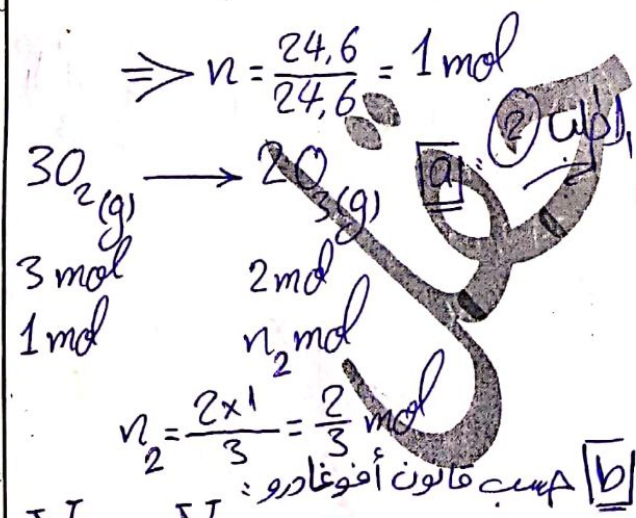 ⇒ n = 24,6 / 24,6 = 1 mol
الطلب 2
a : 3O₂(g) → 2O₃(g)
3 mol 2 mol
1 mol n₂ mol
n₂ = 2×1 / 3 = 2/3 mol
b حسب قانون أفوغادرو :